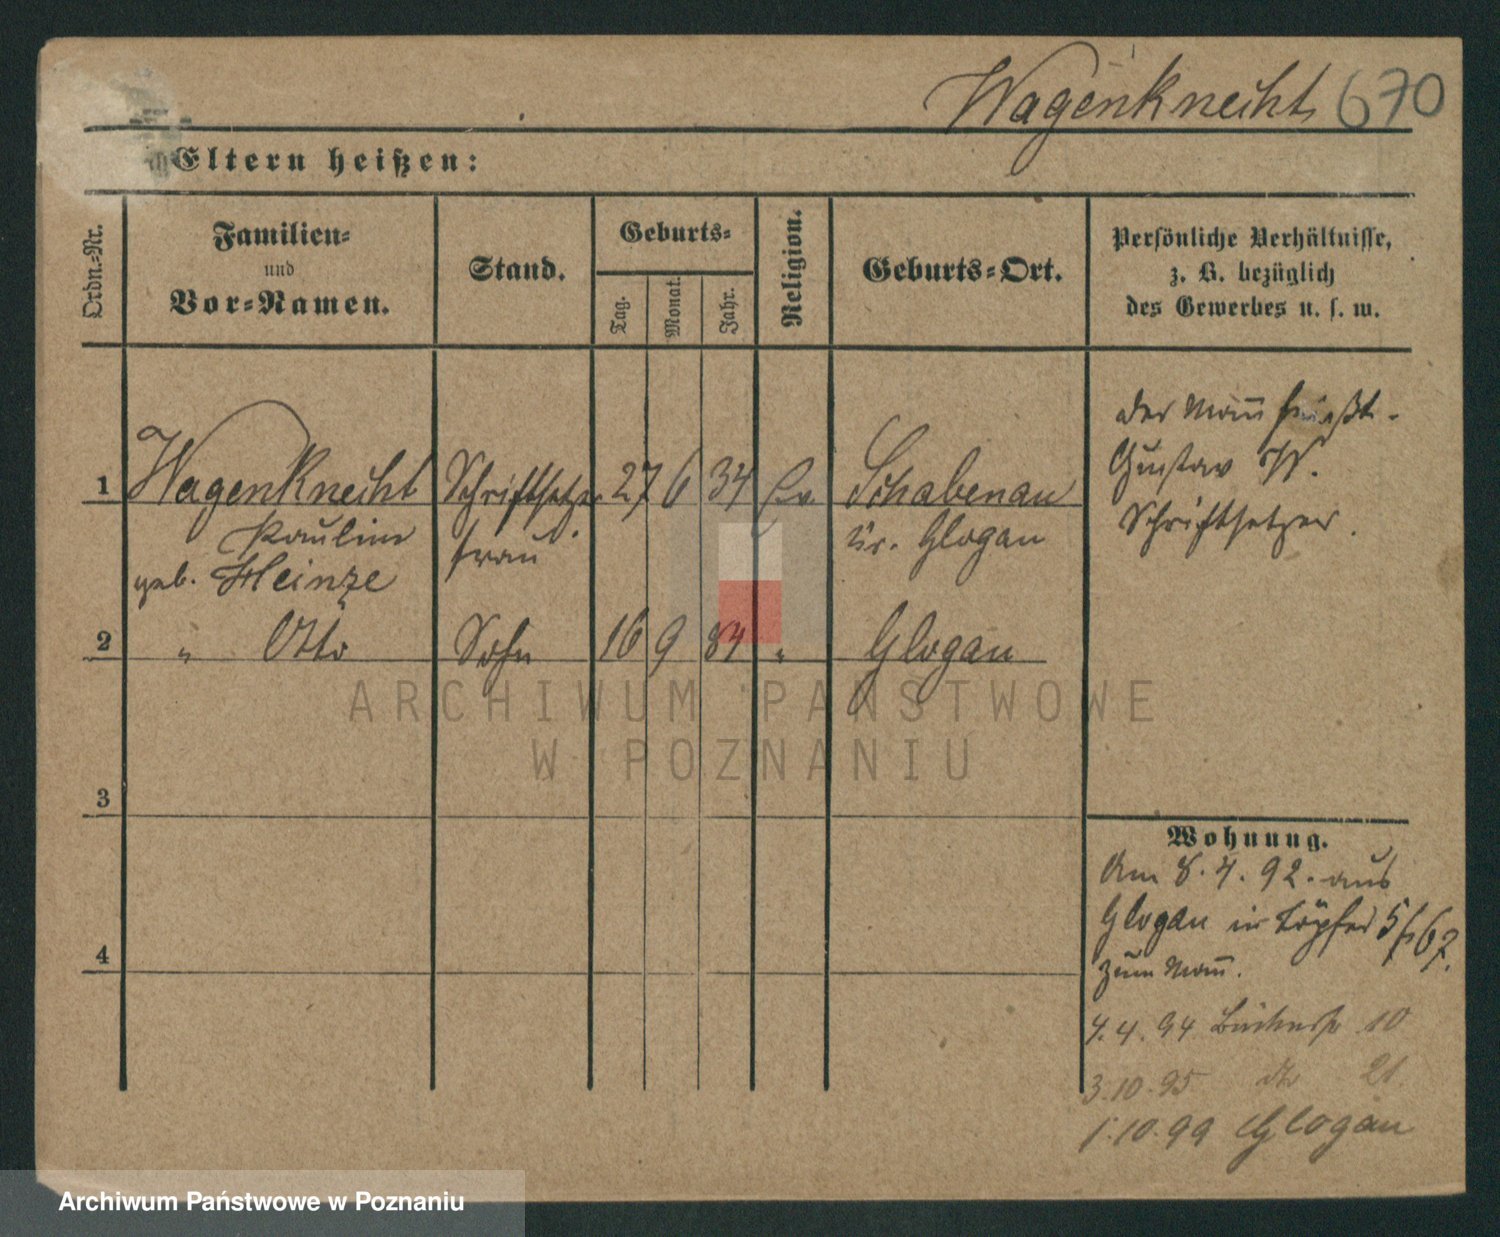 Wagenknecht 670
Eltern heißen:
Ordn.-Nr.
Familien-
und
Vor-Namen.
Stand.
Geburts-
Tag.
Monat.
Jahr.
Religion.
Geburts-Ort.
Persönliche Verhältnisse,
z. B. bezüglich
des Gewerbes u. s. w.
1 Wagenknecht Schriftsetzer 27 6 34 Ev Schabenau
Pauline frau Kr. Glogau
geb. Heinze
der Mann heißt
Gustav W.
Schriftsetzer.
2 " Otto Sohn 16 9 84 " Glogau
ARCHIWUM PAŃSTWOWE
W POZNANIU
3
4
Wohnung.
Am 8.4.92. aus
Glogau in Töpfer 5
zum Mann.
4.4.94 10
3.10.95 do 21
1.10.99 Glogau
Archiwum Państwowe w Poznaniu